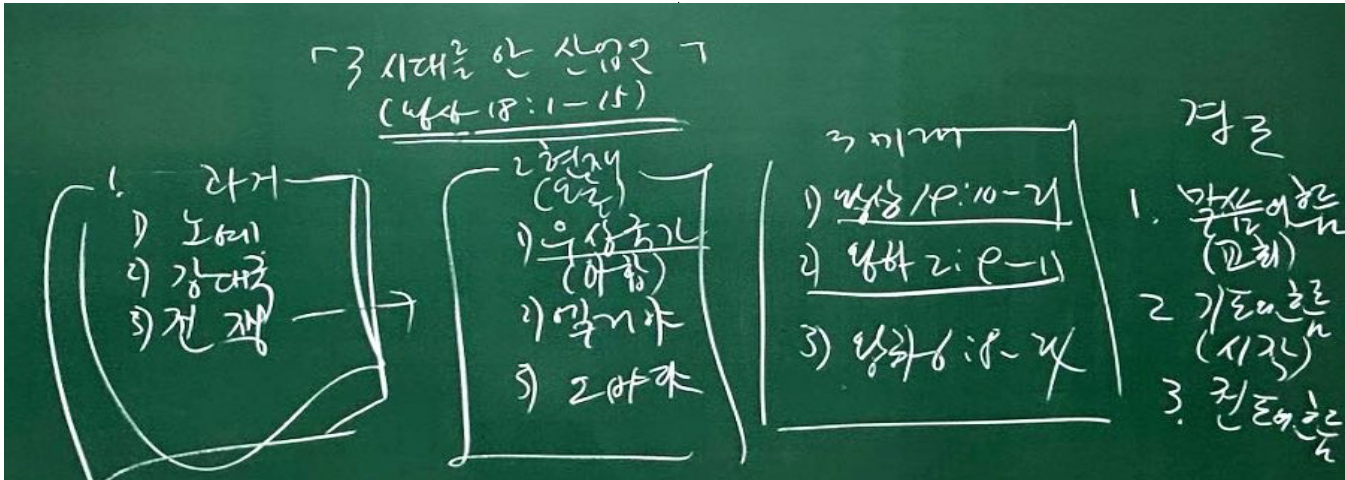 「3 시대를 안 산업인」
(왕상 18:1-15)
1. 과거
1) 노예
2) 강대국
3) 전쟁 →
2 현재
(오늘)
1) 우상국가
(아합)
2) 엘리야
3) 오바댜
3 미래
1) 왕상 19:10-21
2) 왕하 2:9-11
3) 왕하 6:8-24
결론
1. 말씀의 흐름
(교회)
2 기도의 흐름
(시각)
3. 전도의 흐름